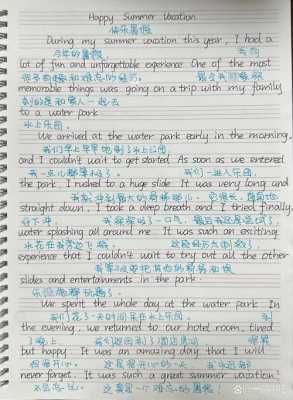 Happy Summer Vacation
快乐暑假
During my summer vacation this year, I had a
今年的暑假, 我有
lot of fun and unforgettable experience. One of the most
很多有趣和难忘的经历。 最令我难忘
memorable things was going on a trip with my family
的是和家人一起去
to a water park.
水上乐园。
We arrived at the water park early in the morning,
我们早上早早地到了水上乐园,
and I couldn't wait to get started. As soon as we entered
我一点儿都等不了。 我们一进入乐园,
the park, I rushed to a huge slide. It was very long and
我就冲到 滑梯那儿。它很长,
straight down. I took a deep breath and I tried finally,
往下冲。 我深深吸了一口气,最后我还是尝试了,
water splashing all around me. It was such an exciting
水花在我旁边飞溅。 这段经历太刺激了,
experience that I couldn't wait to try out all the other
我等不及要把其他的滑梯和
slides and entertainments in the park.
We spent the whole day at the water park. In
我们花了一天时间在水上乐园。 到
the evening, we returned to our hotel room, tired
了晚上, 我们返回到了酒店房间
but happy. It was an amazing day that I will
但很开心。 这是 的一天
never forget. It was such a great summer vacation!
不会忘记。 这真是一个难忘的暑假!